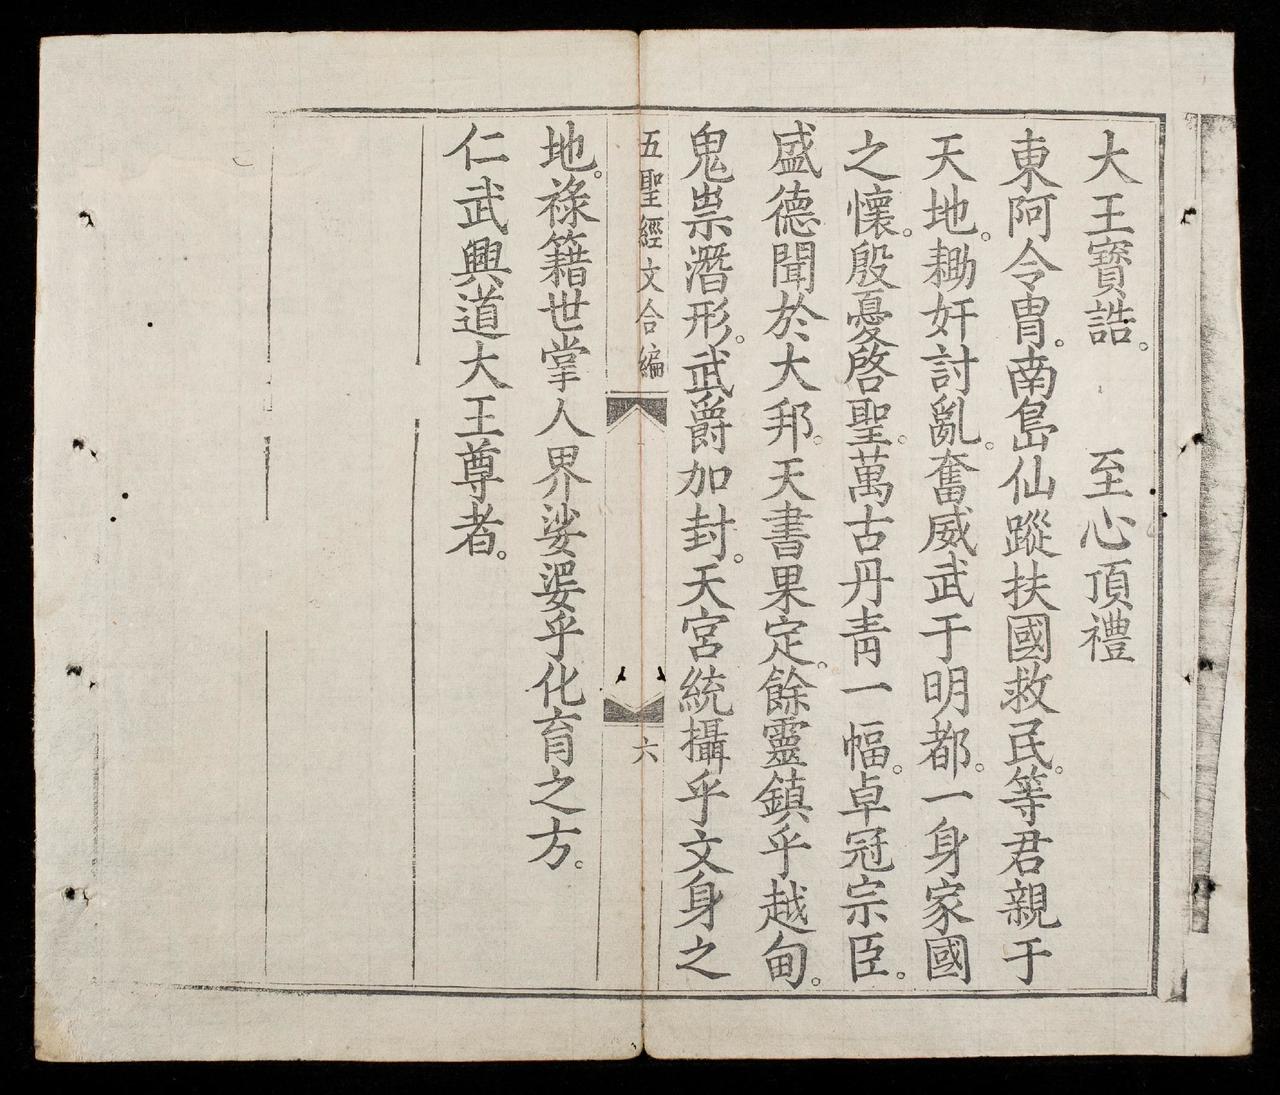 大王寶誥。　至心頂禮
東阿令胄。南島仙蹤扶國救民。等君親于
天地。耡奸討亂。奮威武于明都。一身家國
之懷。殷憂啓聖。萬古丹青一幅。卓冠宗臣。
盛德聞於大邦。天書果定。餘靈鎮乎越甸。
鬼祟潛形。武爵加封。天宮統攝乎文身之
五聖經文合編
六
地。祿籍世掌人界娑婆乎化育之方。
仁武興道大王尊者。